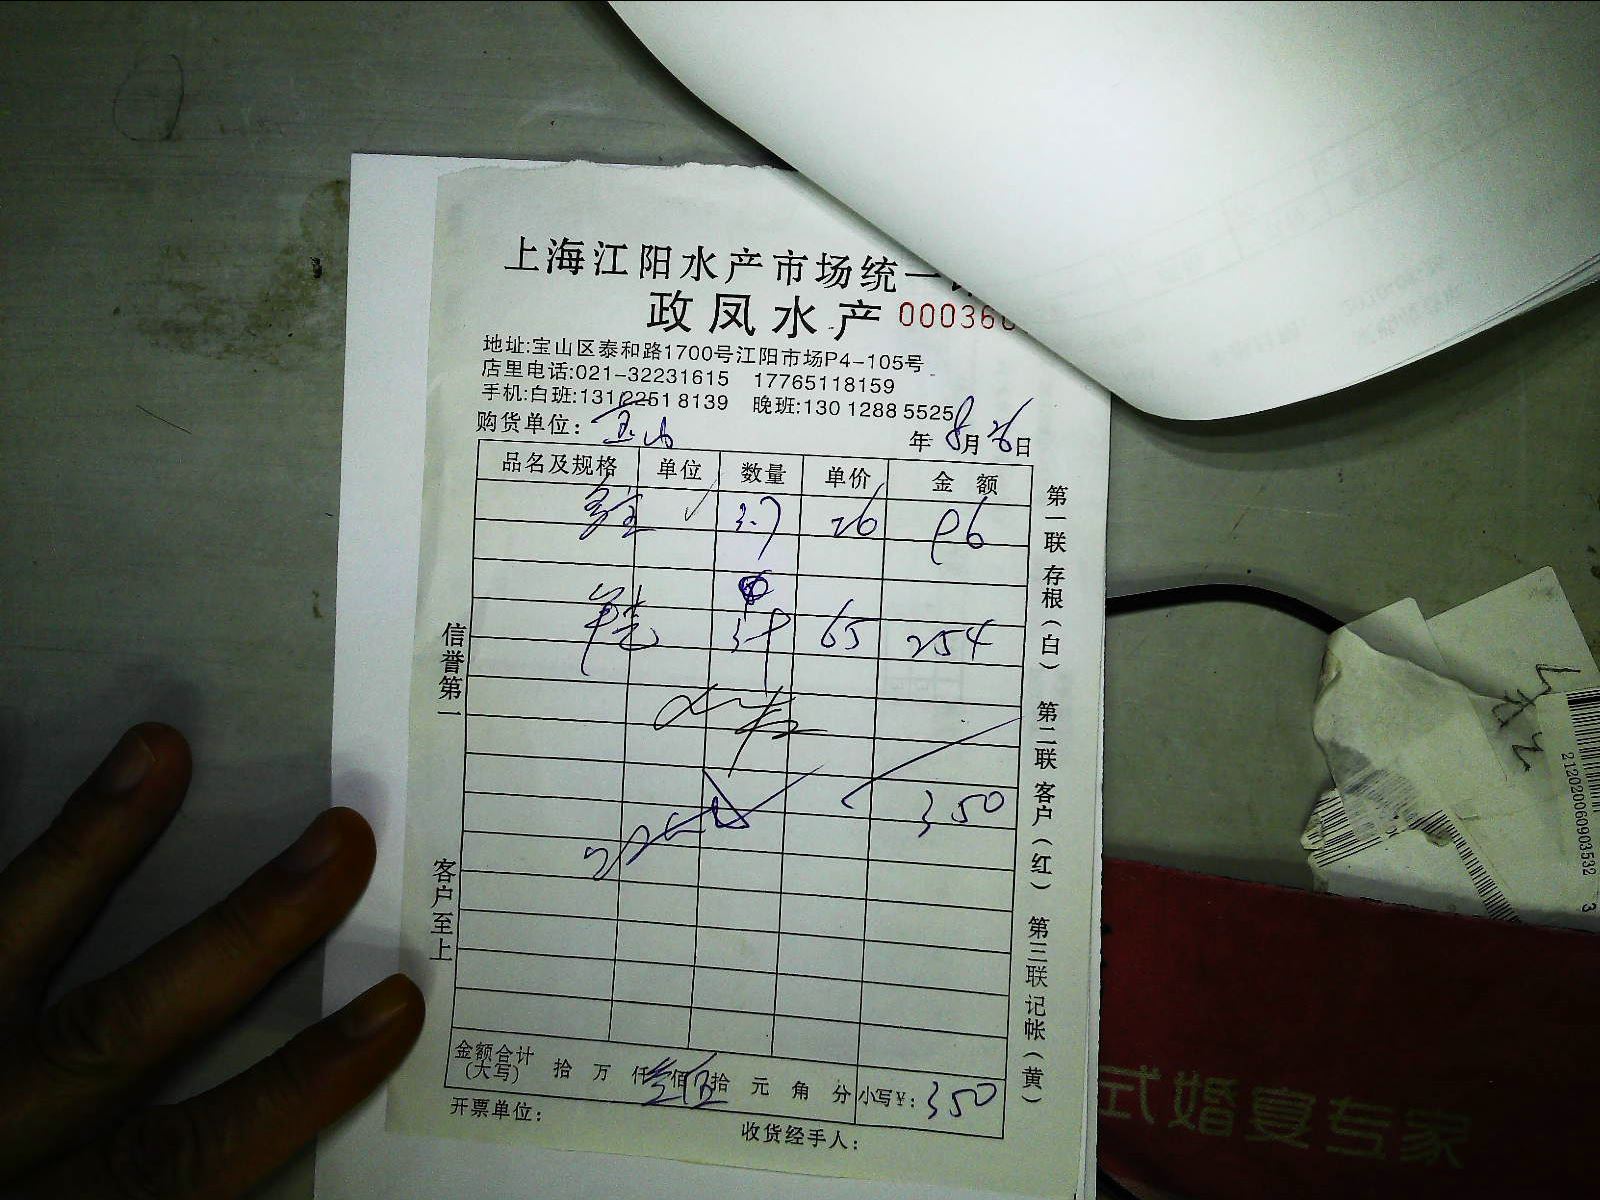 上海江阳水产市场统一
政凤水产 00036
地址:宝山区泰和路1700号江阳市场P4-105号
店里电话:021-32231615 17765118159
手机:白班:131 2251 8139 晚班:130 1288 5525
购货单位: 宝山 年 8月 26日
品名及规格 单位 数量 单价 金额
多宝 3.7 26 96
65 254
350
金额合计(大写) 拾 万 仟 叁佰 伍拾 元 角 分 小写¥: 350
开票单位:
收货经手人:
信誉第一
客户至上
第一联 存根(白)
第二联 客户(红)
第三联 记帐(黄)
212020060903532 3
式婚宴专家